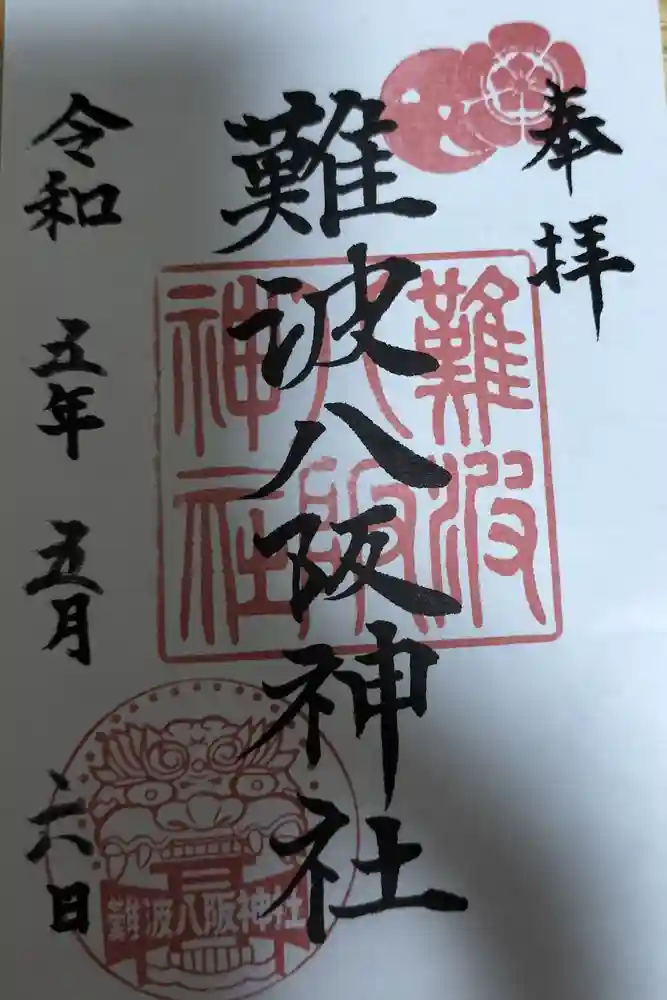 奉拝
難波八阪神社
令和五年五月六日
難波
八阪
神社
難波八阪神社